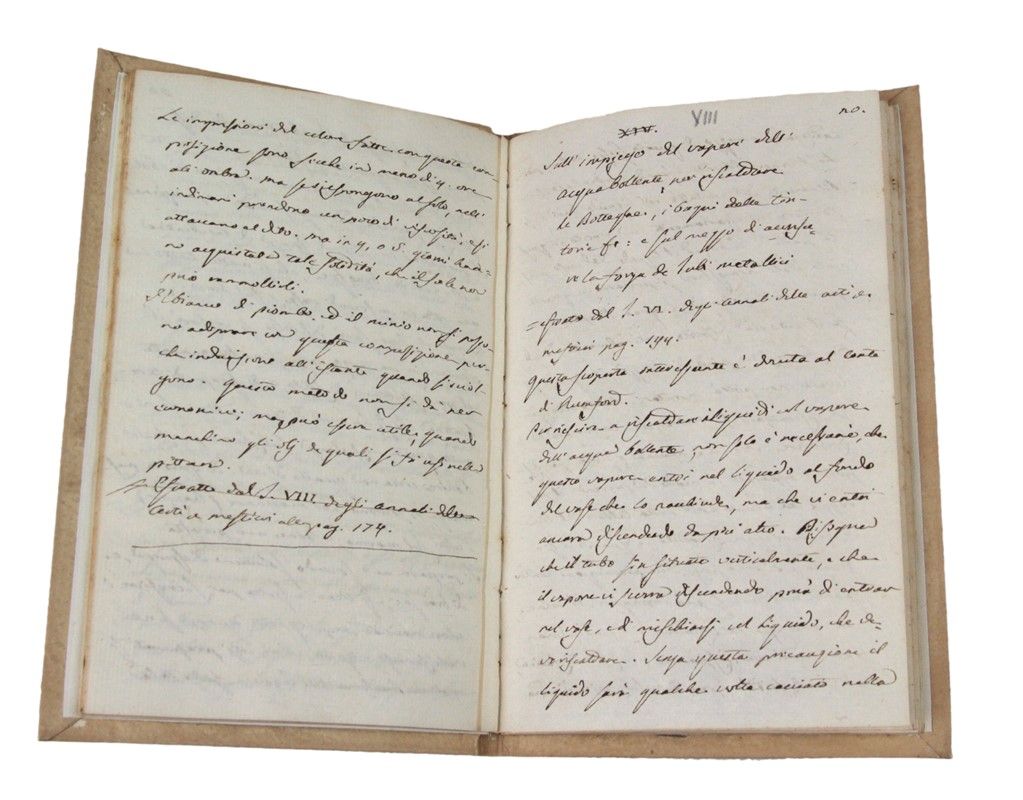 Le impressioni del colore fatte con questa com-
posizione sono secche in meno di 4 ore
all'ombra. ma se si espongono al sole, nelli
indimani prendono un poco di viscosità, e si
attaccano al dito. ma in 4, o 5 giorni hanno
no acquistata tale solidità, che il sole non
può rammollirli.
Il bianco di piombo, ed il minio non si posso-
no adoprare con questa composizione, per-
che induriscono all'istante quando si
gono. questo metodo non si dà per
economico; ma può essere utile, quando
manchino gli olj de quali si fà uso nella
pittura.
Estratto dal T. VIII. degli annali delle
arti e mestieri alla pag. 174.
XIV. VIII 20.
Sull' impiego del vapore dell'
acqua bollente, per riscaldare
le Botteghe, i bagni delle Tin-
torie &: e sul mezzo di accresce-
re la forza de Tubi metallici
= Estratto dal T. VI. degli annali delle arti e
mestieri pag. 194.
questa scoperta interessante è dovuta al conte
di Rumford.
Per riescire a riscaldare i liquidi col vapore
dell'acqua bollente, non solo è necessario, che
questo vapore entri nel liquido al fondo
del vase che lo racchiude, ma che vi entri
ancora discendendo da più alto. Bisogna
che il tubo sia situato verticalmente, e che
il vapore vi scorra discendendo prima di entrare
nel vase, e di mischiarsi col liquido, che de-
ve riscaldare. Senza questa precauzione il
liquido sarà qualche volta cacciato nella